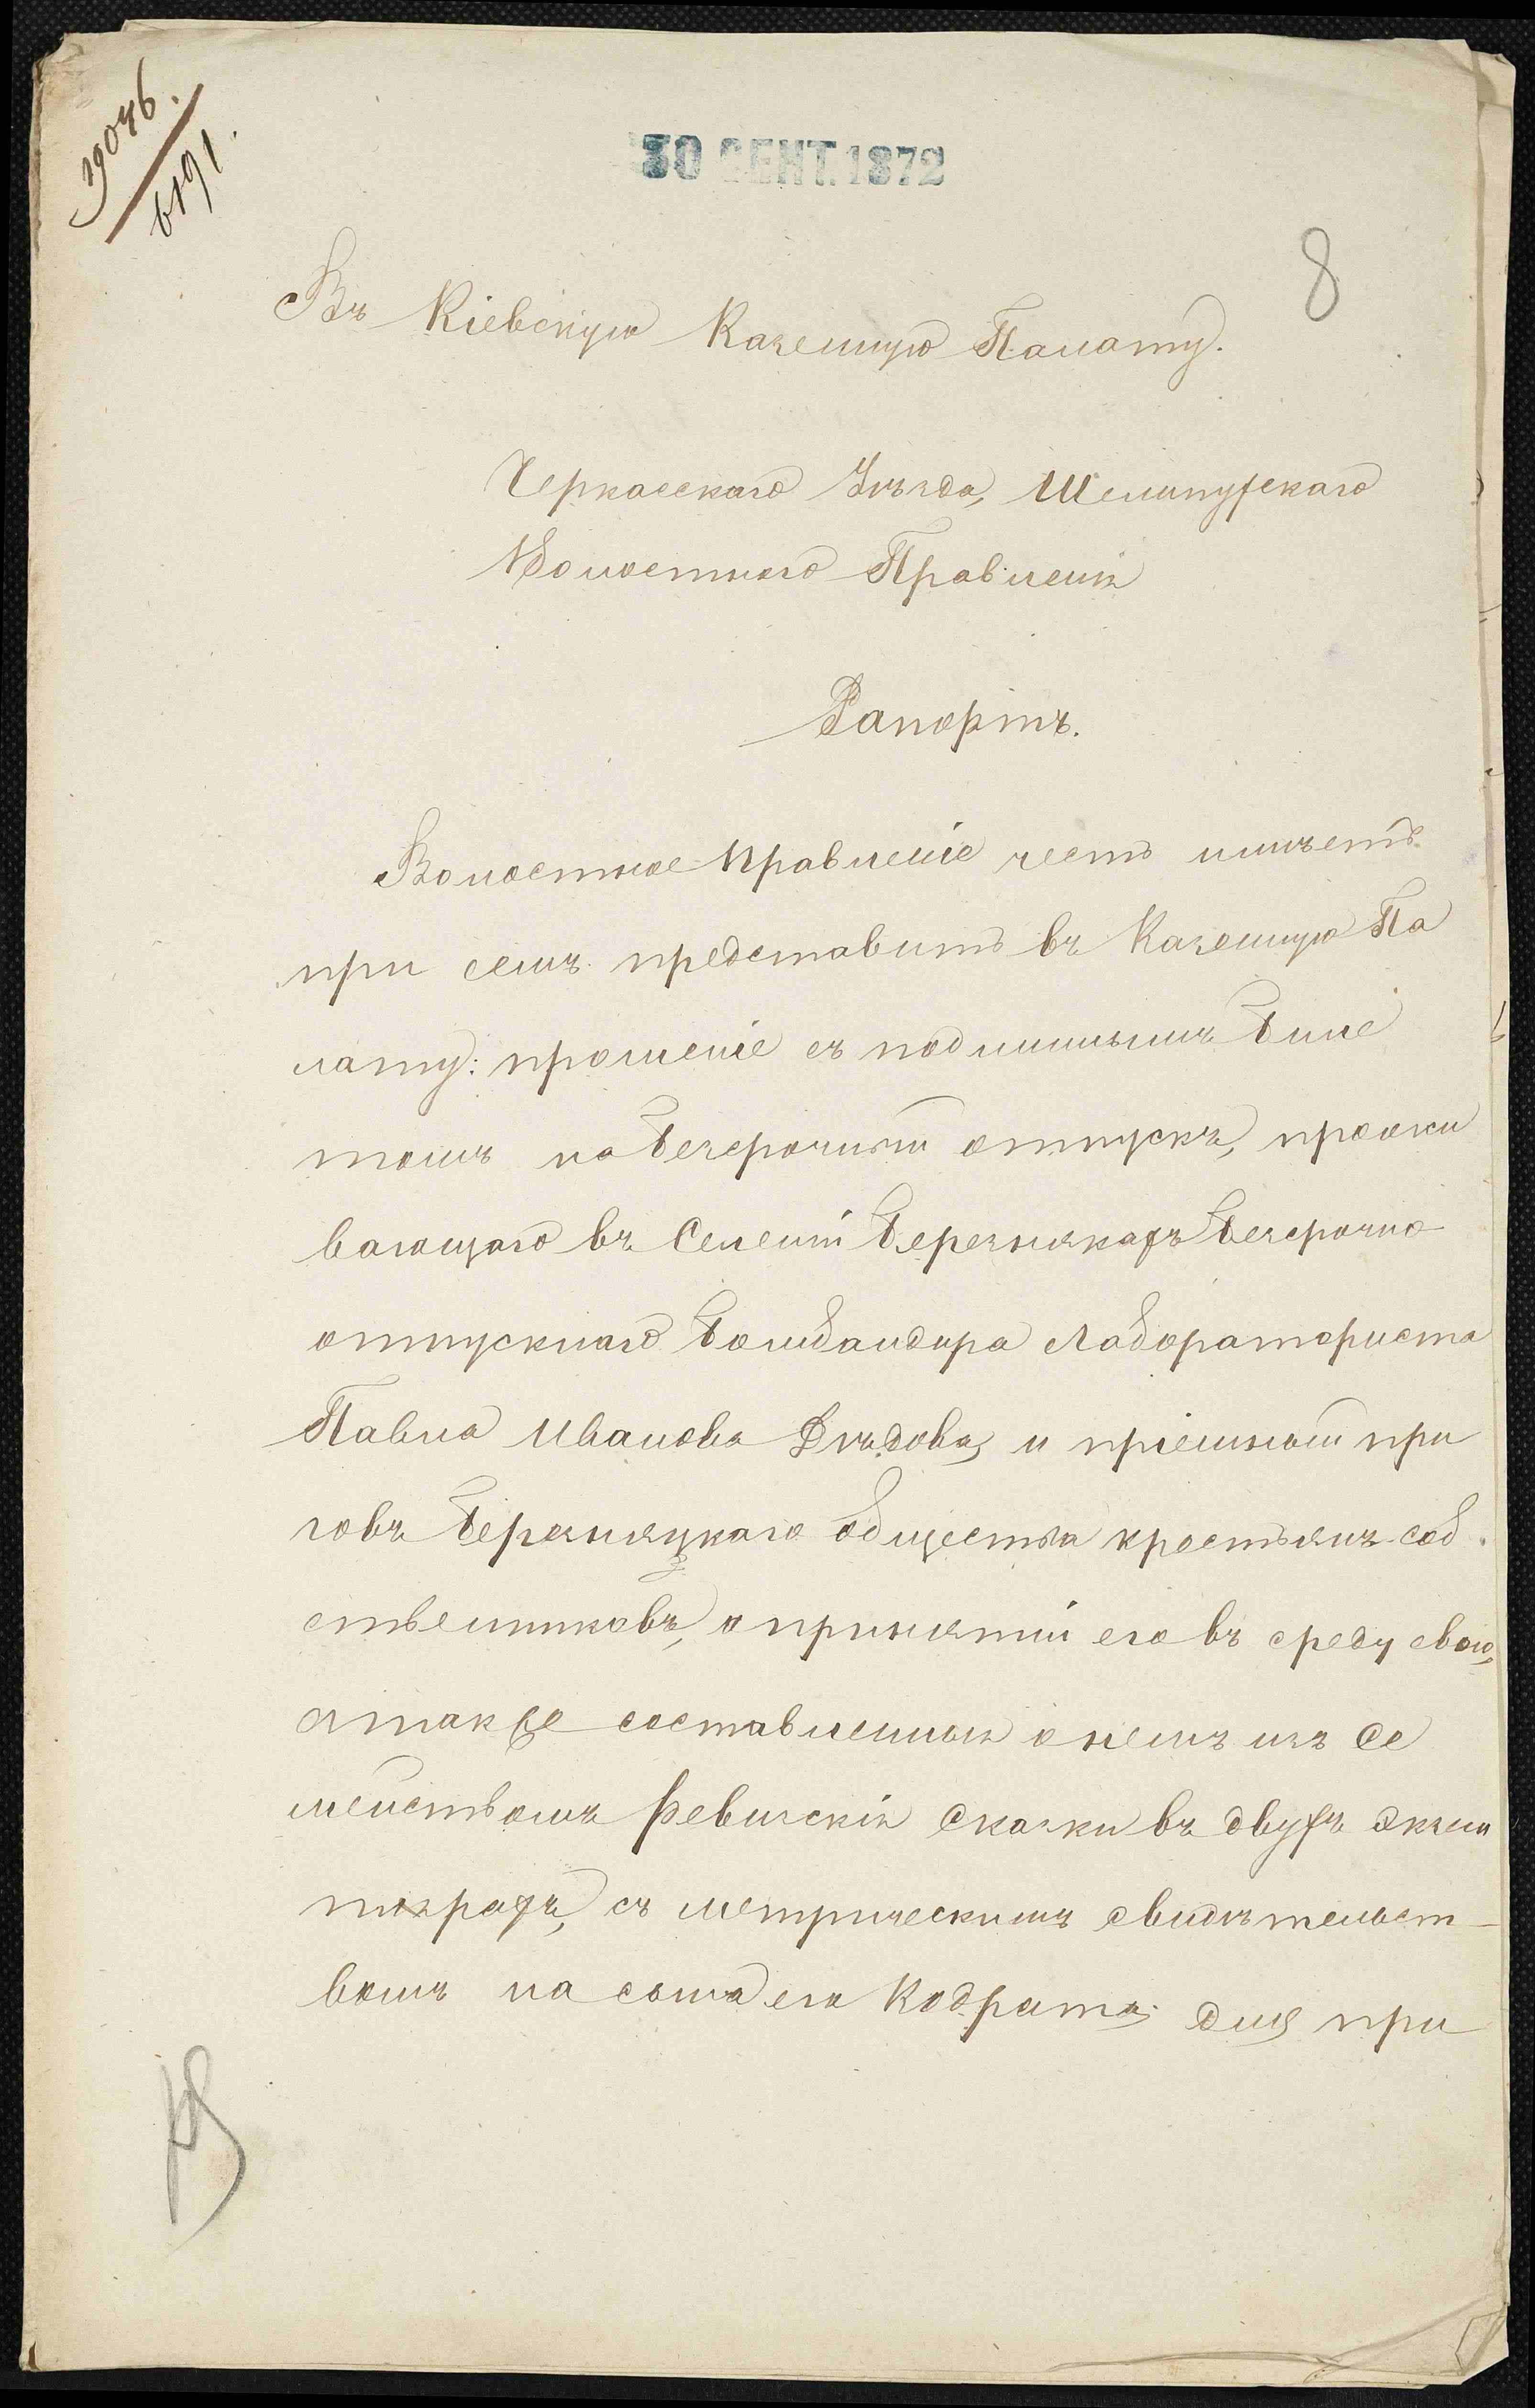 39046.
6191.
30 СЕНТ. 1872
8
Въ Кіевскую Казенную Палату.
Черкасскаго Уѣзда, Шелипухскаго
Волостного Правленія
Рапортъ.
Волостное Правленіе честь имѣетъ
при семъ представить въ Казенную Па
лату: прошеніе съ подлиннымъ Биле
томъ на безсрочный отпускъ, прожи
вающаго въ Селеніи Березнякахъ безсрочно
отпускнаго Бомбандира Лабораториста
Павла Иванова Дѣдова, и пріемный при
говъ Березняцкаго общества крестьянъ соб
ственниковъ, о принятіи его въ среду свою,
а также составленныя о немъ изъ Се
мействомъ Ревизскія Сказки въ двухъ Экзем
плярахъ, съ метрическимъ свидѣтельст
вомъ на сына его Кодрата; для при